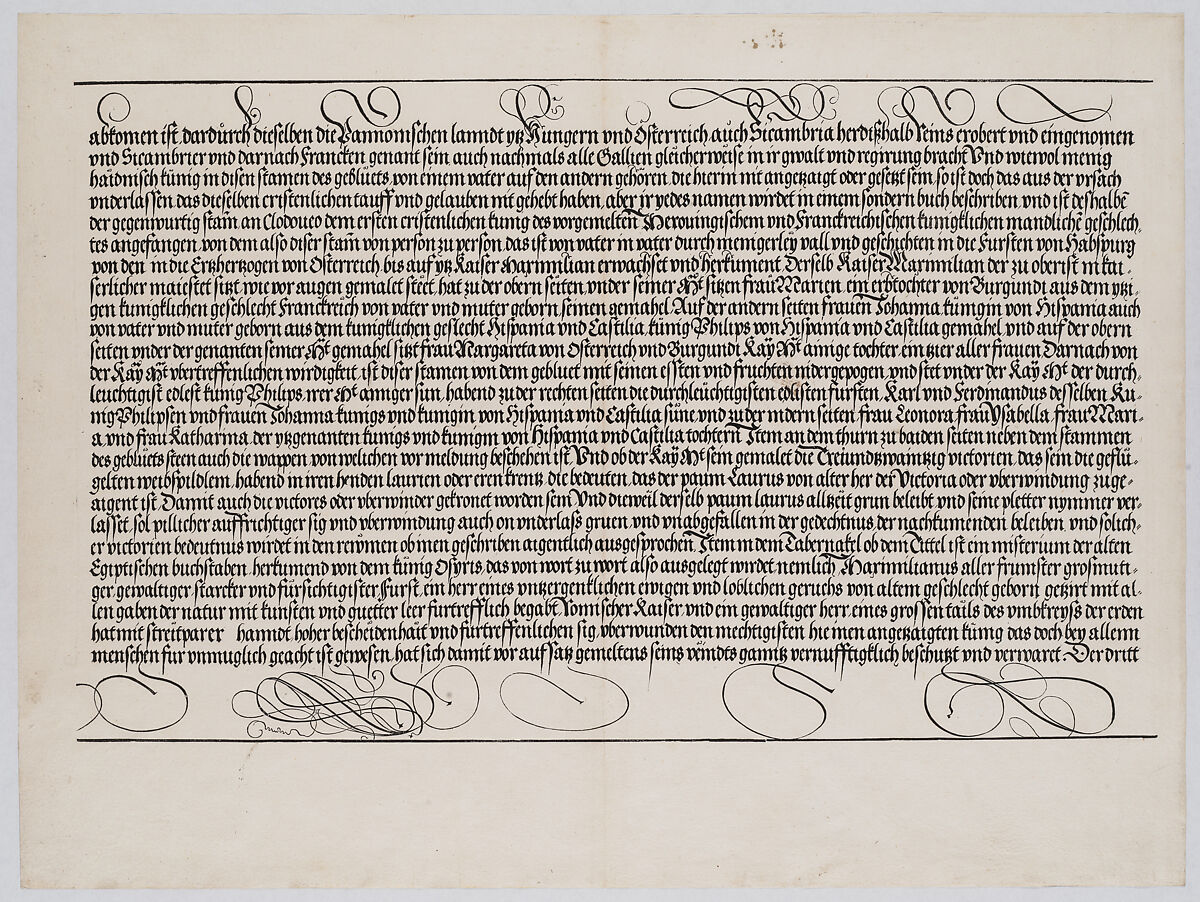 abkomen ist, dardurch dieselben die Pannonischen lanndt ytz Hungern vnd Österreich, auch Sicambria herdißhalb Reins erobert vnd eingenomen
vnd Sicambrier vnd darnach Francken genant sein, auch nachmals alle Gallien gleicherweise in ir gwalt vnd regirung bracht Vnd wiewol menig
haidnisch künig in disen stamen des geblüets, von einem vater auf den andern gehören, die hierin nit angetzaigt oder gesetzt sein, so ist doch das aus der vrsach
vnderlassen, das dieselben cristenlichen tauff vnd gelauben nit gehebt haben, aber ir yedes namen wirdet in einem sondern buch beschriben, vnd ist deshalbē
der gegenwurtig stam̄ an Clodoueo dem ersten cristenlichen kunig des vorgemelten Merouingischem vnd Franckreichischen kunigklichen mandlichē geschlech,
tes angefangen, von dem also diser stam̄ von person zu person, das ist von vater in vater durch menigerley vall vnd geschichten in die Fursten von Habspurg
von den in die Ertzhertzogen von Osterreich, bis auf ytz Kaiser Maximilian erwachset vnd herkument. Derselb Kaiser Maximilian der zu oberist in kai-
serlicher maiestet sitzt, wie vor augen gemalet steet, hat zu der obern seiten, vnder seiner Mt sitzen frau Marien, ein erbtochter von Burgundi aus dem ytzi-
gen kunigklichen geschlecht Franckreich von vater vnd muter geborn seinen gemahel. Auf der andern seiten frauen Johanna künigin von Hispania auch
von vater vnd muter geborn aus dem kunigklichen geslecht Hispania vnd Castilia, künig Philips von Hispania vnd Castilia gemahel, vnd auf der obern
seiten vnder der genanten seiner Mt gemahel sitzt frau Margareta von Osterreich vnd Burgundi, Kay Mt ainige tochter, ein tzier aller frauen, Darnach von
der Kay Mt vbertreffenlichen wirdigkeit, ist diser stamen von dem gebluet mit seinen essten vnd fruchten nidergepogen, vnd stet vnder der Kay Mt der durch-
leuchtigist edlest künig Philips, irer Mt ainiger sun, habend zu der rechten seiten die durchleüchtigisten edlisten fürsten, Karl vnd Ferdinandus desselben Kü-
nig Philipsen vnd frauen Johanna kunigs vnd kunigin von Hispania vnd Castilia süne, vnd zu der nidern seiten, frau Leonora frau Ysabella frau Mari-
a, vnd frau Katharina, der ytzgenanten kunigs vnd kunigin von Hispania vnd Castilia tochtern. Item an dem thurn zu baiden seiten neben dem stammen
des geblüets steen auch die wappen, von welichen vor meldung beschehen ist, Vnd ob der Kay Mt sein gemalet die Treiundtzwaintzig victorien, das sein die geflü-
gelten weibspildlem, habend in iren henden laurien oder eren krentz, die bedeuten, das der paum Laurus von alter her der Victoria oder vberwindung zuge-
aigent ist, Damit auch die victores oder vberwinder gekronet worden sein, Vnd dieweil derselb paum laurus alltzeit grun beleibt, vnd seine pletter nymmer ver-
lasset, sol pillicher auffrichtiger sig vnd vberwindung auch on vnderlaß gruen, vnd vnabgefallen in der gedechtnus der nachkumenden beleiben, vnd solich-
er victorien bedeutnus wirdet in den reiymen oben geschriben aigentlich ausgesprochen, Item in dem Tabernakel ob dem Tittel ist ein misterium der alten
Egiptischen buchstaben, herkumend von dem künig Osyris, das von wort zu wort also ausgelegt wirdet, nemlich, Maximilianus aller frumster grosmuti-
ger gewaltiger starcker vnd fürsichtigister Fürst, ein herr eines vntzergenklichen ewigen vnd loblichen geruchs von altem geschlecht geborn getzirt mit al-
len gaben der natur mit kunsten vnd guetter leer furtrefflich begabt Romischer Kaiser, vnd ein gewaltiger herr, eines grossen tails des vmbkreyß der erden
hat mit streitparer hanndt, hoher bescheidenhait vnd fürtreffenlichen sig, vberwunden den mechtigisten hie inen angetzaigten künig das doch bey allenn
menschen für vnmuglich geacht ist gewesen, hat sich damit vor auffsatz gemeltens seins veindts gantz vernufftigklich beschutzt vnd verwaret. Der dritt